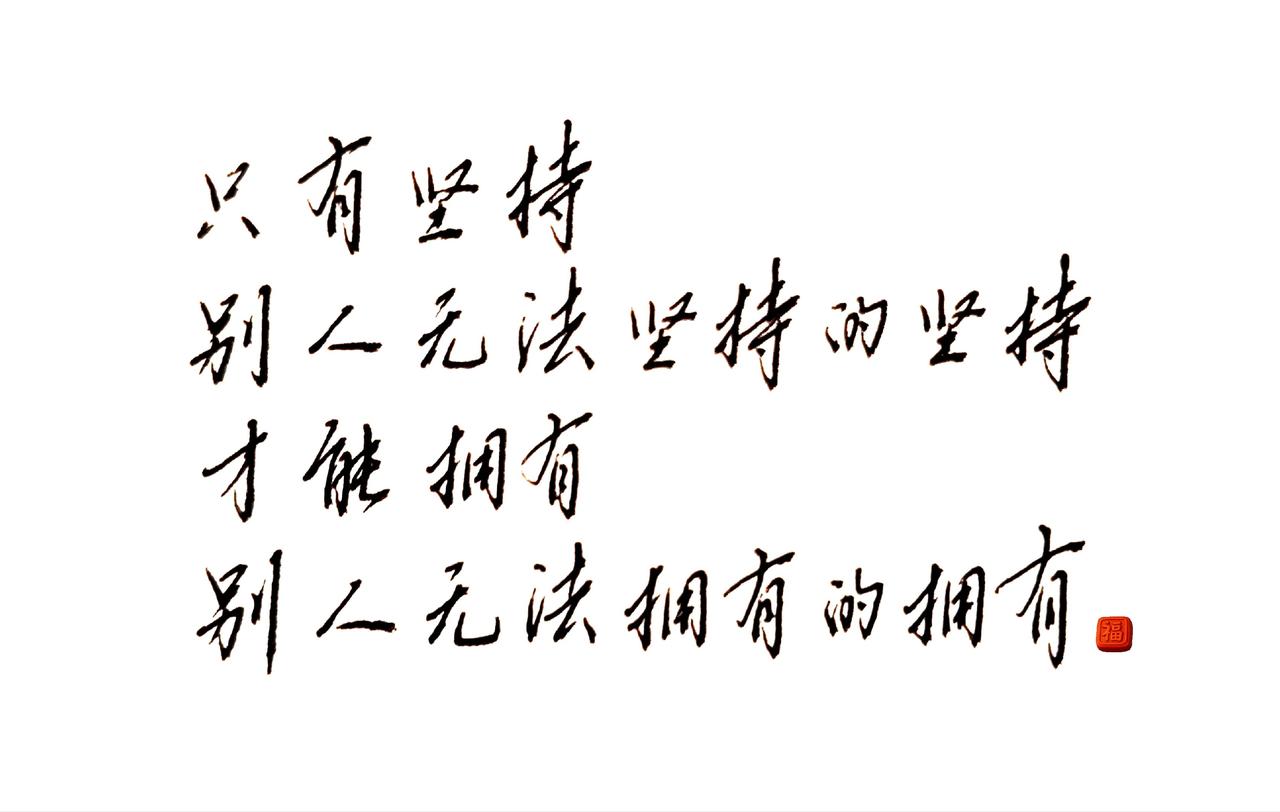 只有坚持
别人无法坚持的坚持
才能拥有
别人无法拥有的拥有
福